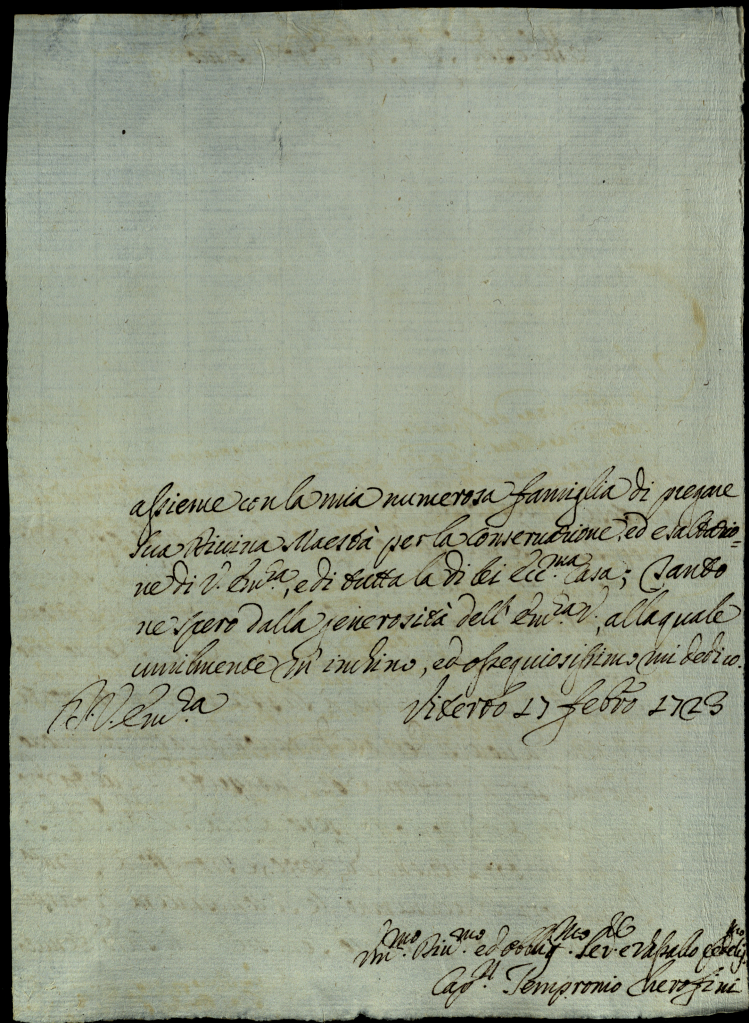 assieme con la mia numerosa famiglia di pregare
Sua Divina Maestà per la Conservazione, ed esaltatio=
ne di V. Em.za, e di tutta la di lei Ecc.ma Casa; Tanto
ne spero dalla generosità dell' Em.za V., alla quale
umilmente m' inchino, ed ossequiosissimo mi dedico.
D. V. Em.za
Viterbo 17 febro 1723
Um.mo Div.mo ed obblig.mo Ser.e e Vassallo
Cap.n Sempronio